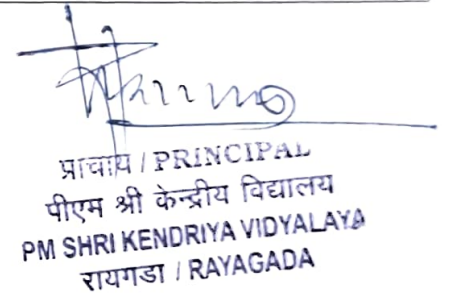 प्राचार्य / PRINCIPAL
पीएम श्री केन्द्रीय विद्यालय
PM SHRI KENDRIYA VIDYALAYA
रायगडा / RAYAGADA